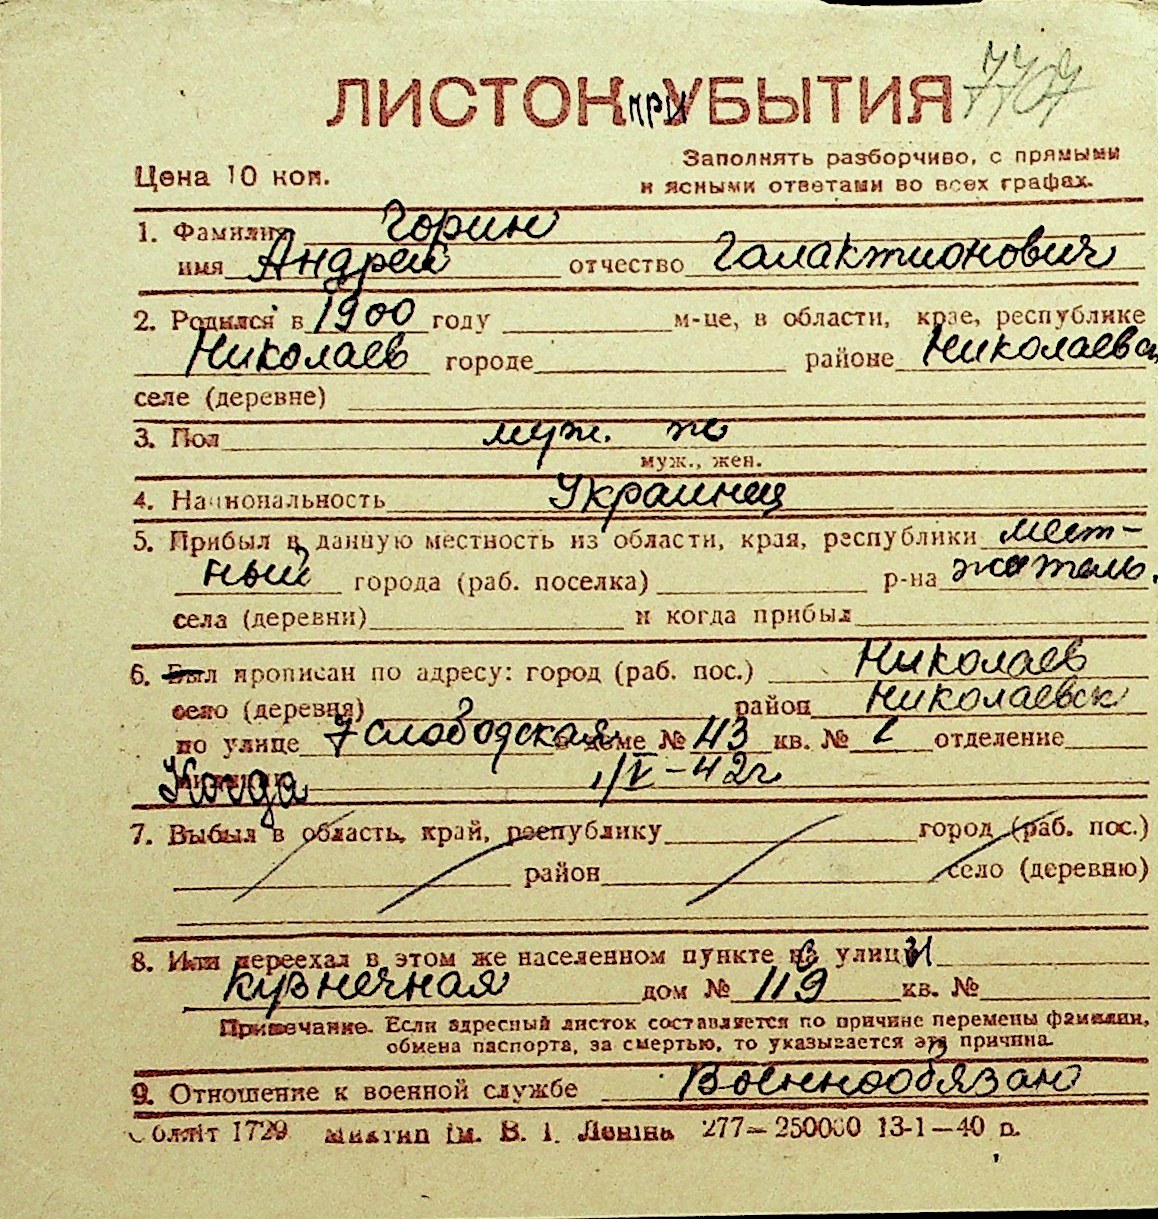 ЛИСТОК при УБЫТИЯ 7707
Цена 10 коп.
Заполнять разборчиво, с прямыми
и ясными ответами во всех графах.
1. Фамилия Горин
имя Андрей отчество Галактионович
2. Родился в 1900 году м-це, в области, крае, республике
Николаев городе районе Николаевск
селе (деревне)
3. Пол муж.
муж., жен.
4. Национальность Украинец
5. Прибыл в данную местность из области, края, республики мест-
ный города (раб. поселка) р-на житель.
села (деревни) и когда прибыл
6. Был прописан по адресу: город (раб. пос.) Николаев
село (деревня) район Николаевск
по улице 7 слободская в доме № 43 кв. № отделение
Когда 1/V-42г
7. Выбыл в область, край, республику город (раб. пос.)
район село (деревню)
8. Или переехал в этом же населенном пункте с улицы
кузнечная дом № 119 кв. №
Примечание. Если адресный листок составляется по причине перемены фамилии,
обмена паспорта, за смертью, то указывается эта причина.
9. Отношение к военной службе Военнообязан
Обллiт 1729 Миктип iм. В. I. Ленiна 277—250000 13-1—40 р.